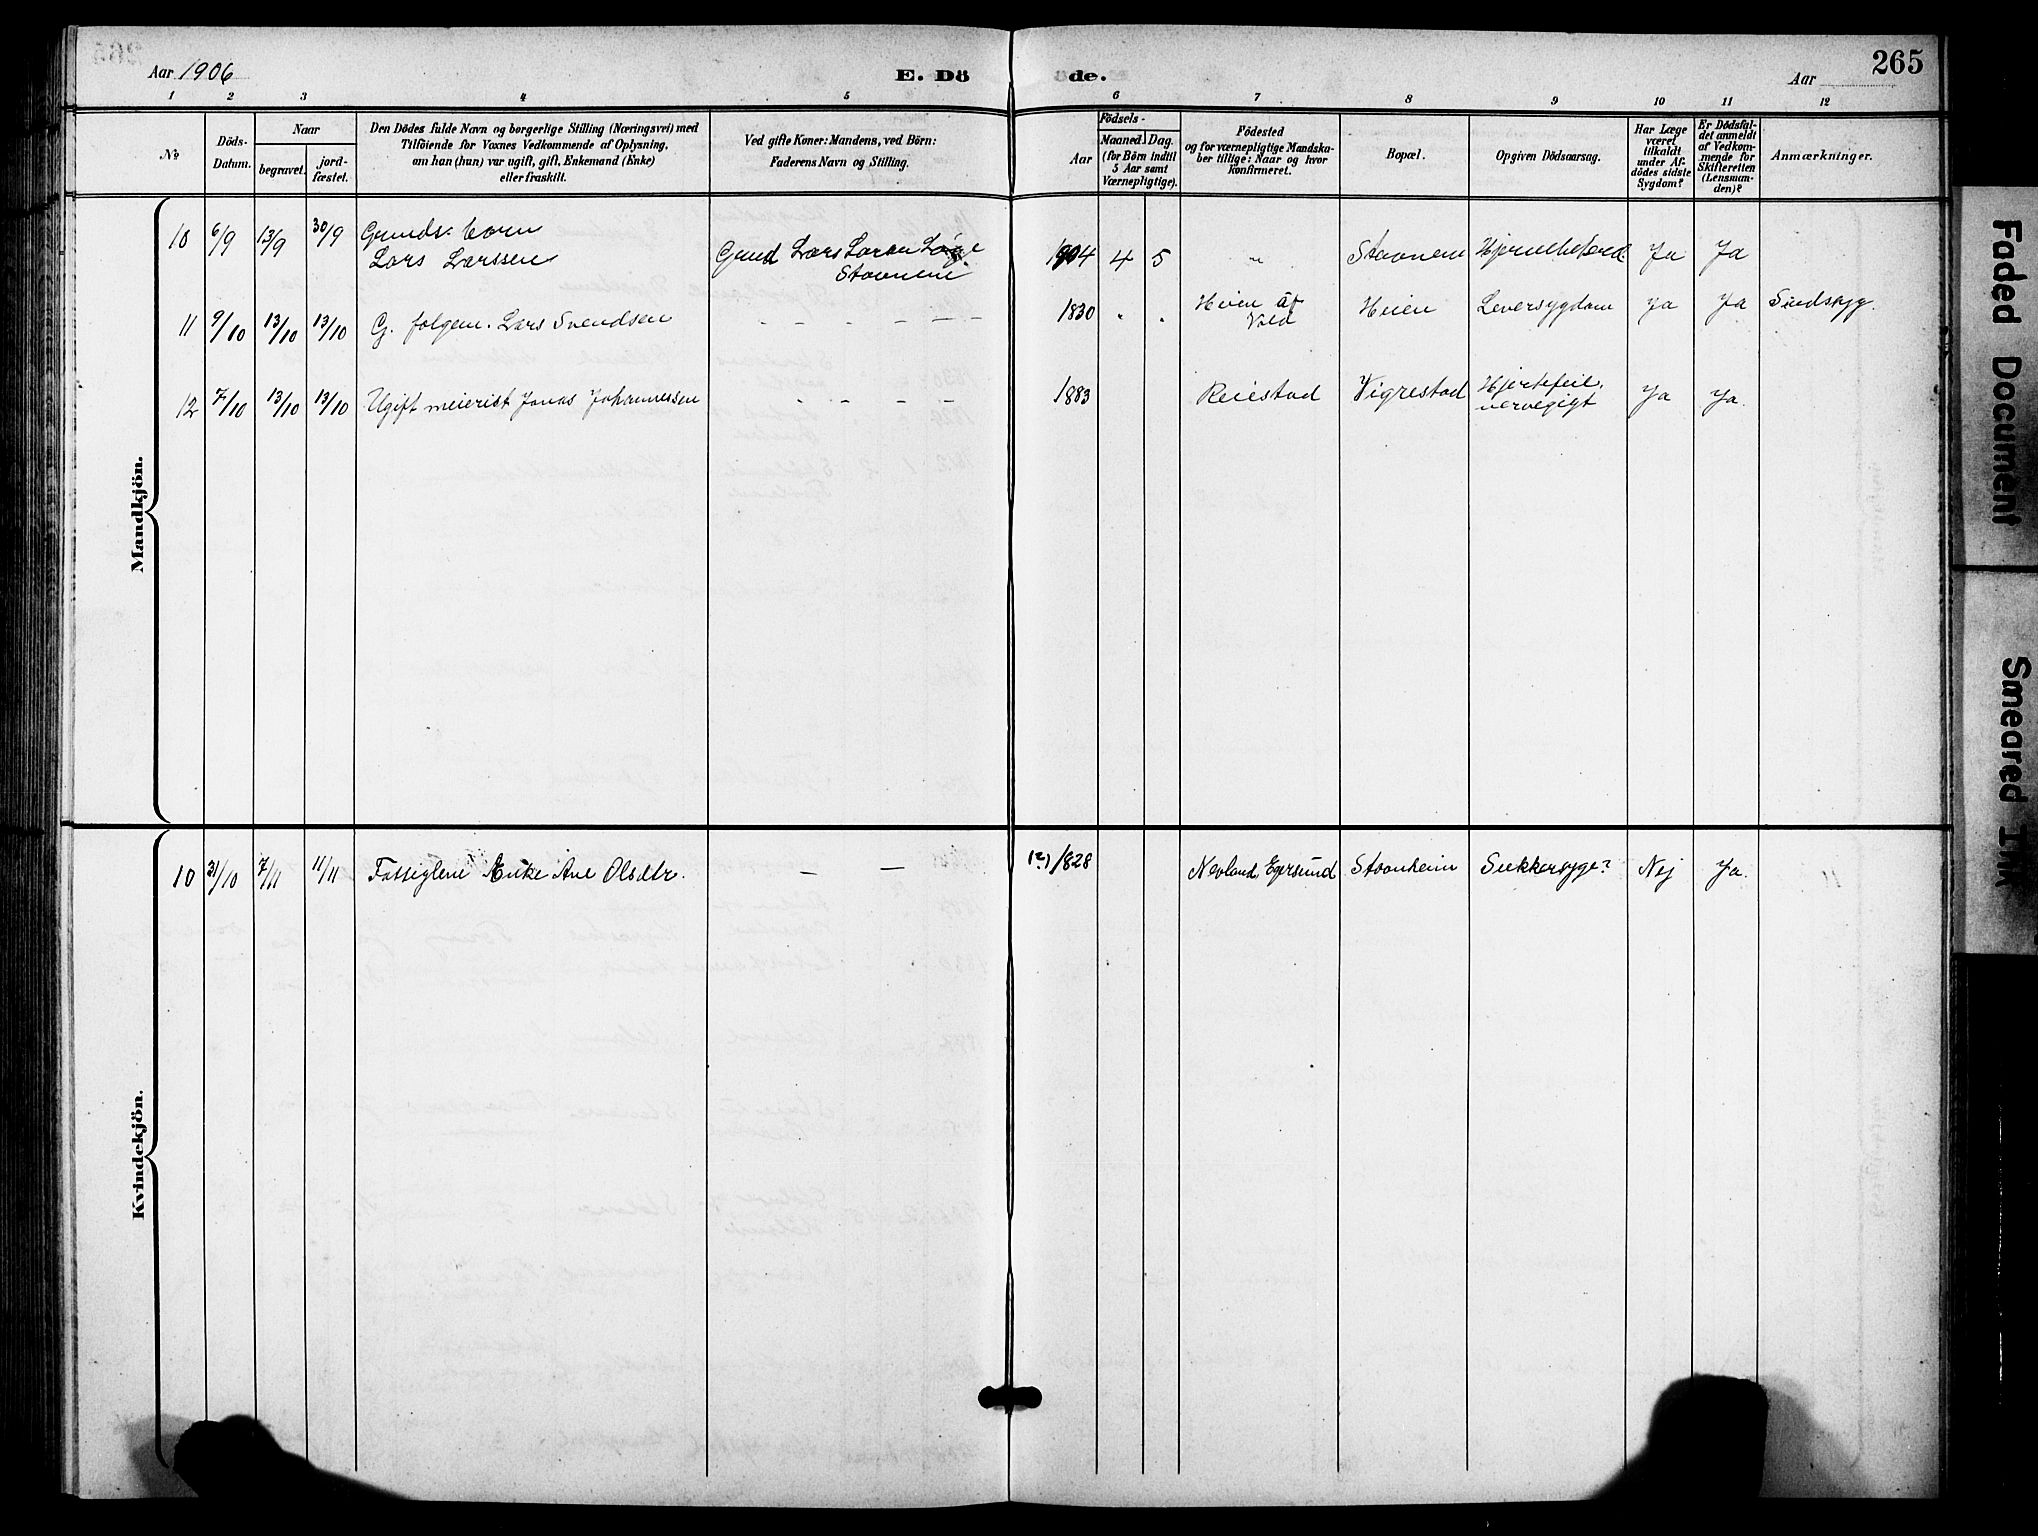 265
Aar 1906
E. Dö
de.
Aar
1 2 3 4 5 6 7 8 9 10 11 12
No
Döds-
Datum.
Naar
begravet.
jord-
fæstet.
Den Dödes fulde Navn og borgerlige Stilling (Næringsvei) med
Tilföiende for Voxnes Vedkommende af Oplysning,
om han (hun) var ugift, gift, Enkemand (Enke)
eller fraskilt.
Ved gifte Koner: Mandens, ved Börn:
Faderens Navn og Stilling.
Födsels-
Aar
Maaned. Dag.
(for Börn indtil
5 Aar samt
Værnepligtige).
Födested
og for værnepligtige Mandska-
ber tillige: Naar og hvor
konfirmeret.
Bopæl.
Opgiven Dödsaarsag.
Har Læge
været
tilkaldt
under Af-
dödes sidste
Sygdom?
Er Dödsfal-
det anmeldt
af Vedkom-
mende for
Skifteretten
(Lensman-
den)?
Anmærkninger.
Mandkjön.
10 6/9 13/9 30/9 Gmds. barn
Lars Larssen
Gmd Lars Larsen
Stavnem
1904 4 5 " Stavnem Ja Ja
11 9/10 13/10 13/10 G. folgem. Lars Svendsen - - - - - 1830 " " Heien af
Vold
Heien Leversygdom Ja Ja Sindssyg.
12 7/10 13/10 13/10 Ugift meierist Jonas Johannessen - - - - - 1883 Reiestad Vigrestad Hjertefeil,
nervegigt
Ja Ja.
Kvindekjön.
10 31/10 7/11 11/11 Fattiglem Enke Ane Olsdtr. - - (?) 1828 Nevland, Egersund Stavnheim Sukkersyge? Nej Ja.
Faded Document
Smeared Ink